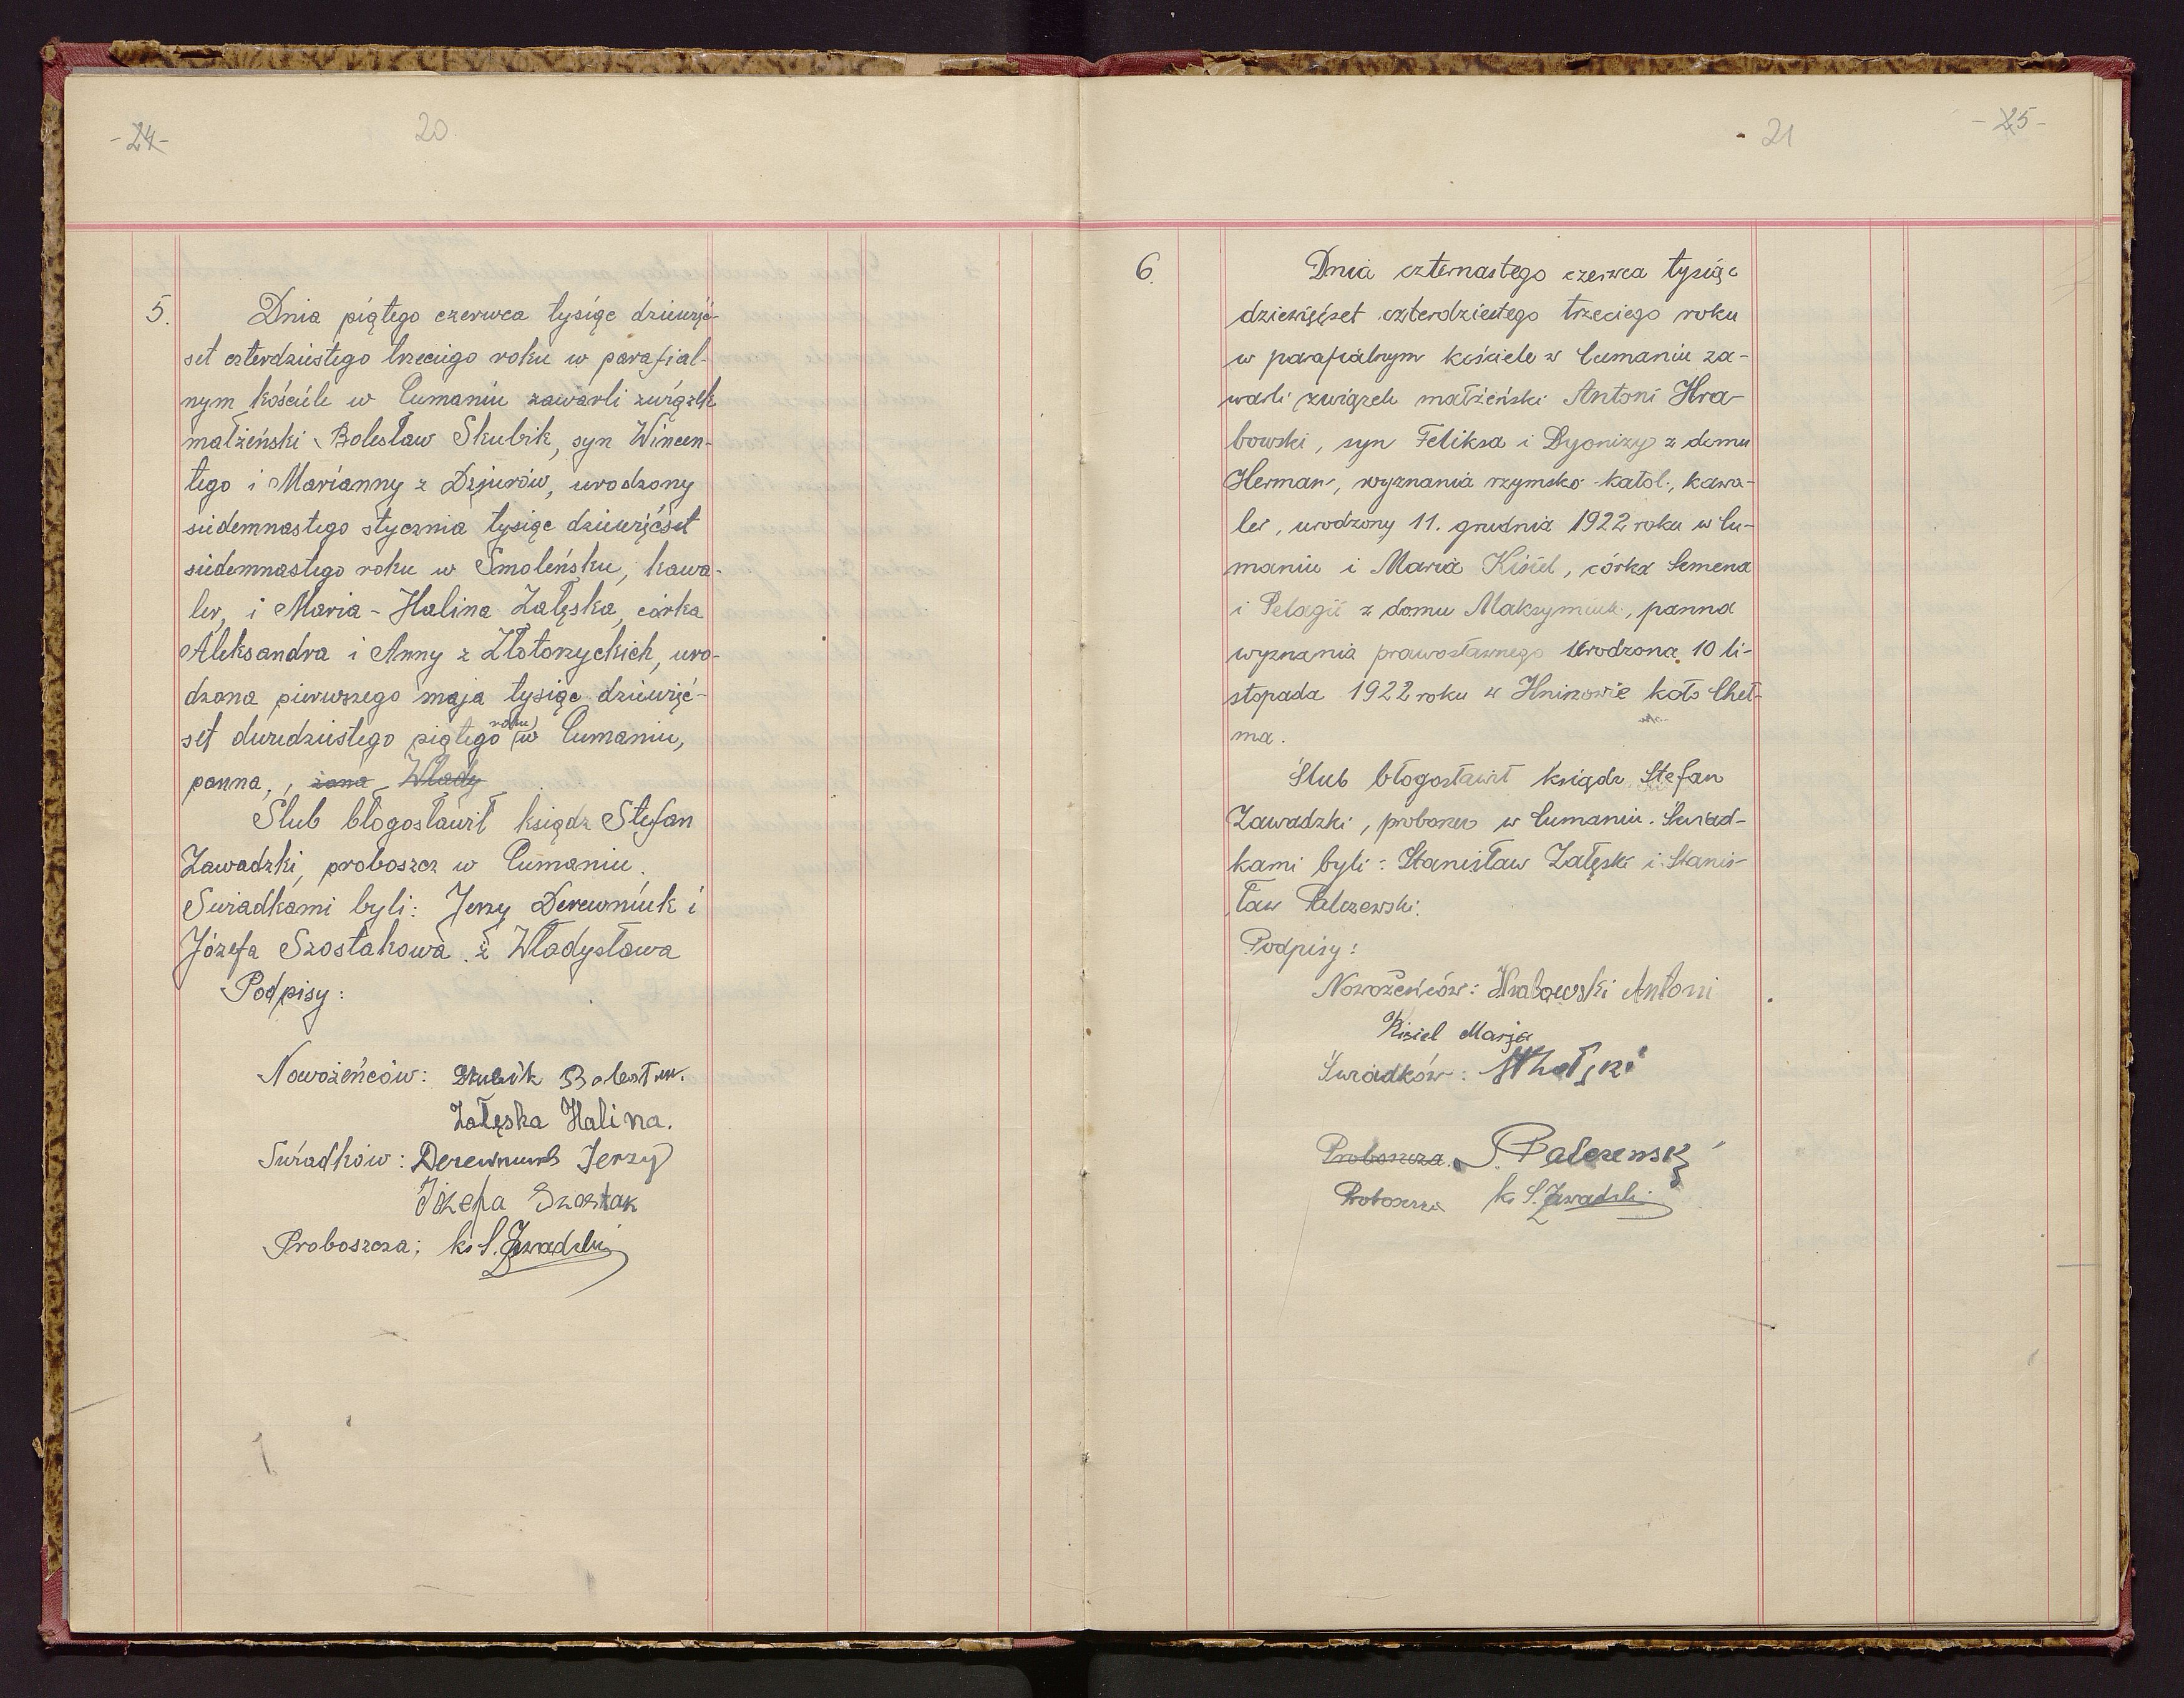 - 24 -
20.
5. Dnia piątego czerwca tysiąc dziewięć-
set czterdziestego trzeciego roku w parafjal-
nym kościele w Cumaniu zawarli związek
małżeński Bolesław Skubik, syn Wincen-
tego i Marianny z Dzjurów, urodzony
siedemnastego stycznia tysiąc dziewięćset
siedemnastego roku w Smoleńsku, kawa-
ler, i Maria - Halina Załęska, córka
Aleksandra i Anny z Złotorzyckich, uro-
dzona pierwszego maja tysiąc dziewięć-
set dwudziestego piątego roku w Cumaniu,
panna, , żona Włady
Ślub błogosławił ksiądz Stefan
Zawadzki, proboszcz w Cumaniu.
Świadkami byli: Jerzy Derewniuk i
Józefa Szostakowa ż Władysława
Podpisy:
Nowożeńców: Skubik Bolesław.
Załęska Halina.
Świadków: Derewniuk Jerzy
Józefa Szostak
Proboszcza: ks S. Zawadzki
21
- 25 -
6. Dnia czternastego czerwca tysiąc
dziewięćset czterdziestego trzeciego roku
w parafialnym kościele w Cumaniu za-
warli związek małżeński Antoni Hra-
bowski, syn Feliksa i Dyonizy z domu
Herman, wyznania rzymsko-katol., kawa-
ler, urodzony 11. grudnia 1922 roku w Cu-
maniu i Maria Kisiel, córka Semena
i Pelagii z domu Maksymiuk, panna
wyznania prawosławnego urodzona 10 li-
stopada 1922 roku w Hniszowie koło Cheł-
ma.
Ślub błogosławił ksiądz Stefan
Zawadzki, proboszcz w Cumaniu. Świad-
kami byli: Stanisław Załęski i Stanis-
ław Palczewski.
Podpisy:
Nowożeńców: Hrabowski Antoni
Kisiel Marja
Świadków:
Proboszcza. S. Palczewski
Proboszcza ks S. Zawadzki